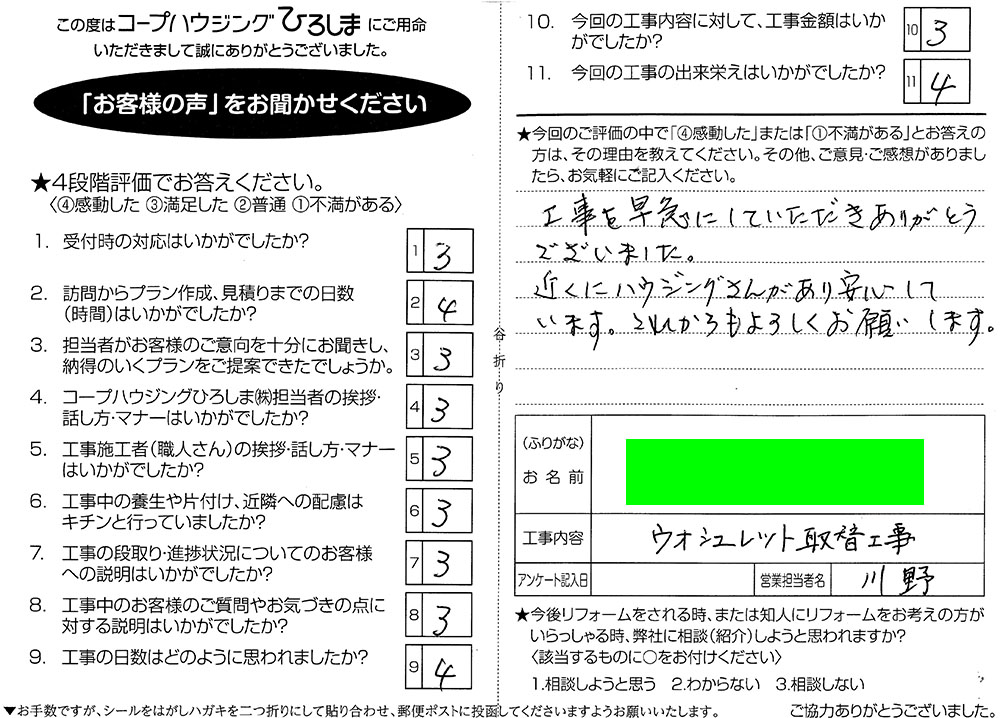 この度はコープハウジングひろしまにご用命
いただきまして誠にありがとうございました。
「お客様の声」をお聞かせください
★4段階評価でお答えください。
〈④感動した ③満足した ②普通 ①不満がある〉
1. 受付時の対応はいかがでしたか?
1 3
2. 訪問からプラン作成、見積りまでの日数
(時間)はいかがでしたか?
2 4
3. 担当者がお客様のご意向を十分にお聞きし、
納得のいくプランをご提案できたでしょうか。
3 3
4. コープハウジングひろしま㈱担当者の挨拶・
話し方・マナーはいかがでしたか?
4 3
5. 工事施工者(職人さん)の挨拶・話し方・マナー
はいかがでしたか?
5 3
6. 工事中の養生や片付け、近隣への配慮は
キチンと行っていましたか?
6 3
7. 工事の段取り・進捗状況についてのお客様
への説明はいかがでしたか?
7 3
8. 工事中のお客様のご質問やお気づきの点に
対する説明はいかがでしたか?
8 3
9. 工事の日数はどのように思われましたか?
9 4
▼お手数ですが、シールをはがしハガキを二つ折りにして貼り合わせ、郵便ポストに投函してくださいますようお願いいたします。
谷折り
10. 今回の工事内容に対して、工事金額はいか
がでしたか?
10 3
11. 今回の工事の出来栄えはいかがでしたか?
11 4
★今回のご評価の中で「④感動した」または「①不満がある」とお答えの
方は、その理由を教えてください。その他、ご意見・ご感想がありまし
たら、お気軽にご記入ください。
工事を早急にしていただきありがとう
ございました。
近くにハウジングさんがあり安心して
います。これからもよろしくお願いします。
(ふりがな)
お名前
工事内容 ウオシュレット取替工事
アンケート記入日 営業担当者名 川野
★今後リフォームをされる時、または知人にリフォームをお考えの方が
いらっしゃる時、弊社に相談(紹介)しようと思われますか?
〈該当するものに○をお付けください〉
1.相談しようと思う 2.わからない 3.相談しない
ご協力ありがとうございました。